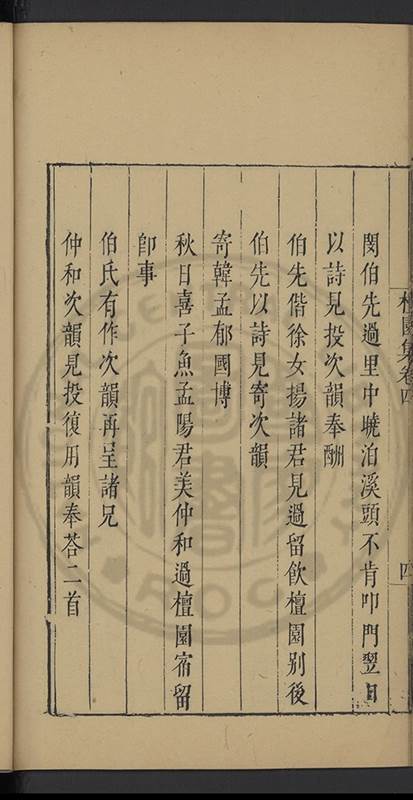 檀園集卷四
四
閔伯先過里中曉泊溪頭不肯叩門翌日
以詩見投次韻奉酬
伯先偕徐女揚諸君見過留飲檀園別後
伯先以詩見寄次韻
寄韓孟郁國博
秋日喜子魚孟陽君美仲和過檀園宿留
即事
伯氏有作次韻再呈諸兄
仲和次韻見投復用韻奉荅二首